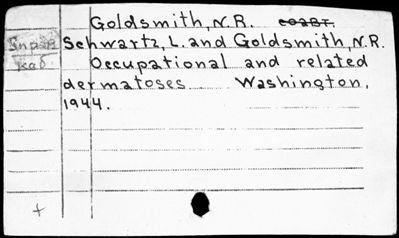 Goldsmith, N.R. соавт.
Schwartz, L. and Goldsmith, N.R.
Occupational and related
dermatoses Washington,
1944.
+